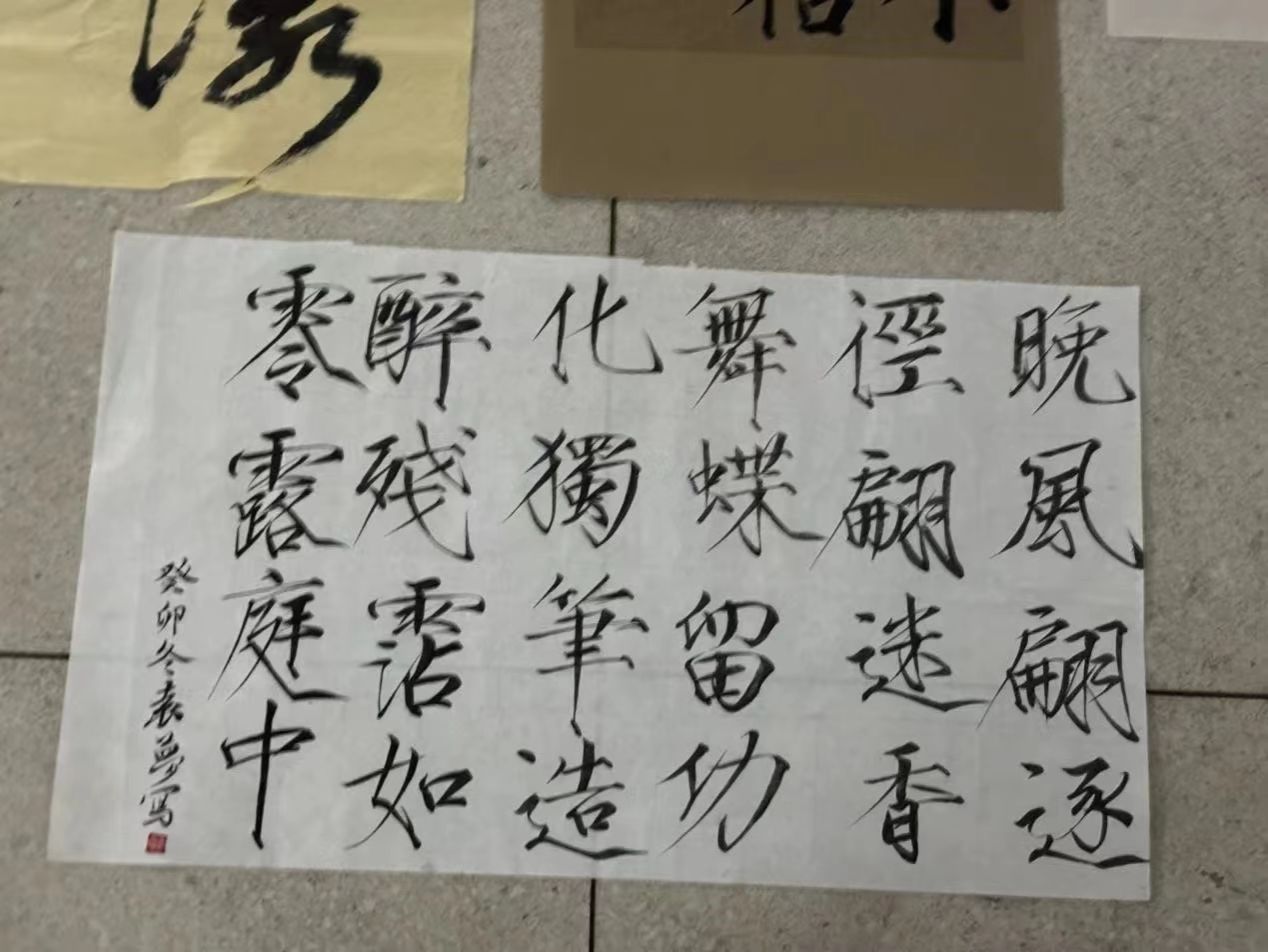 晚風翩逐
徑翩迷香
舞蝶留功
化獨筆造
醉殘霑如
零露庭中
癸卯冬袁夢寫